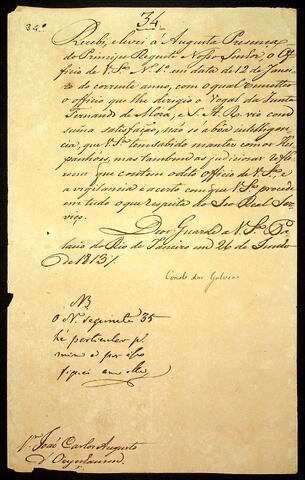 34.
34.ª
Recebi, e levei á Augusta Presença
do Principe Regente Nosso Senhor, o Of-
ficio de V. S.ª N.º 1.º em data de 12 de Janei-
ro do corrente anno, com o qual remetteo
o officio que lhe dirigio o Vogal da Junta
Fernando de Mora, e S. A. R. vio com
summa satisfação, não só a boa intelligen-
cia, que V. S.ª tem sabido manter com os Hes-
panhoes, mas tambem as judiciosas refle-
xoens que contem o dito officio de V. S.ª e
a vigilancia e acerto com que V. S.ª procede
em tudo o que respeita ao Seu Real Ser-
viço.
Deos Guarde a V. S.ª Pa-
lacio do Rio de Janeiro em 26 de Junho
de 1813//
Conde das Galveas
NB
O N.º seguinte 35
hé particular p.ª
mim e por isso
fiquei com elle
S.r João Carlos Augusto
d'Oeynhausen.